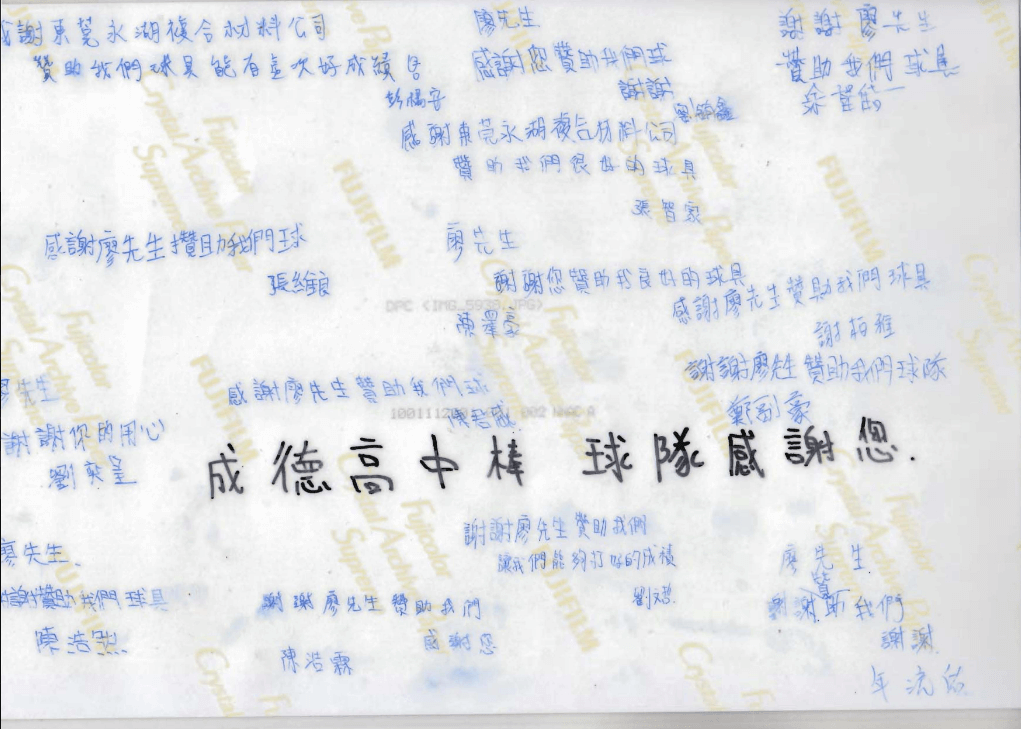 感謝東莞永湖複合材料公司
贊助我們球具能有這次好成績
廖先生
感謝您贊助我們球
謝謝
謝謝廖先生
贊助我們球具
感謝東莞永湖複合材料公司
贊助我們很好的球具
張智家
感謝廖先生攢助我們球
張維良
廖先生
謝謝您贊助我良好的球具
陳澤豪
感謝廖先生贊助我們球具
謝栢雅
謝謝廖先生贊助我們球隊
廖先生
謝謝你的用心
感謝廖先生贊助我們球
成德高中棒 球隊感謝您.
謝謝廖先生贊助我們
讓我們能夠打好的成績
廖先生.
謝謝贊助我們球具
陳浩
謝謝廖先生贊助我們
感謝您
陳浩霖
廖先生.
謝謝贊助我們
謝謝.
FUJIFILM
Fujicolor
Crystal Archive Paper
Supreme
DPC <IMG_5938.JPG>